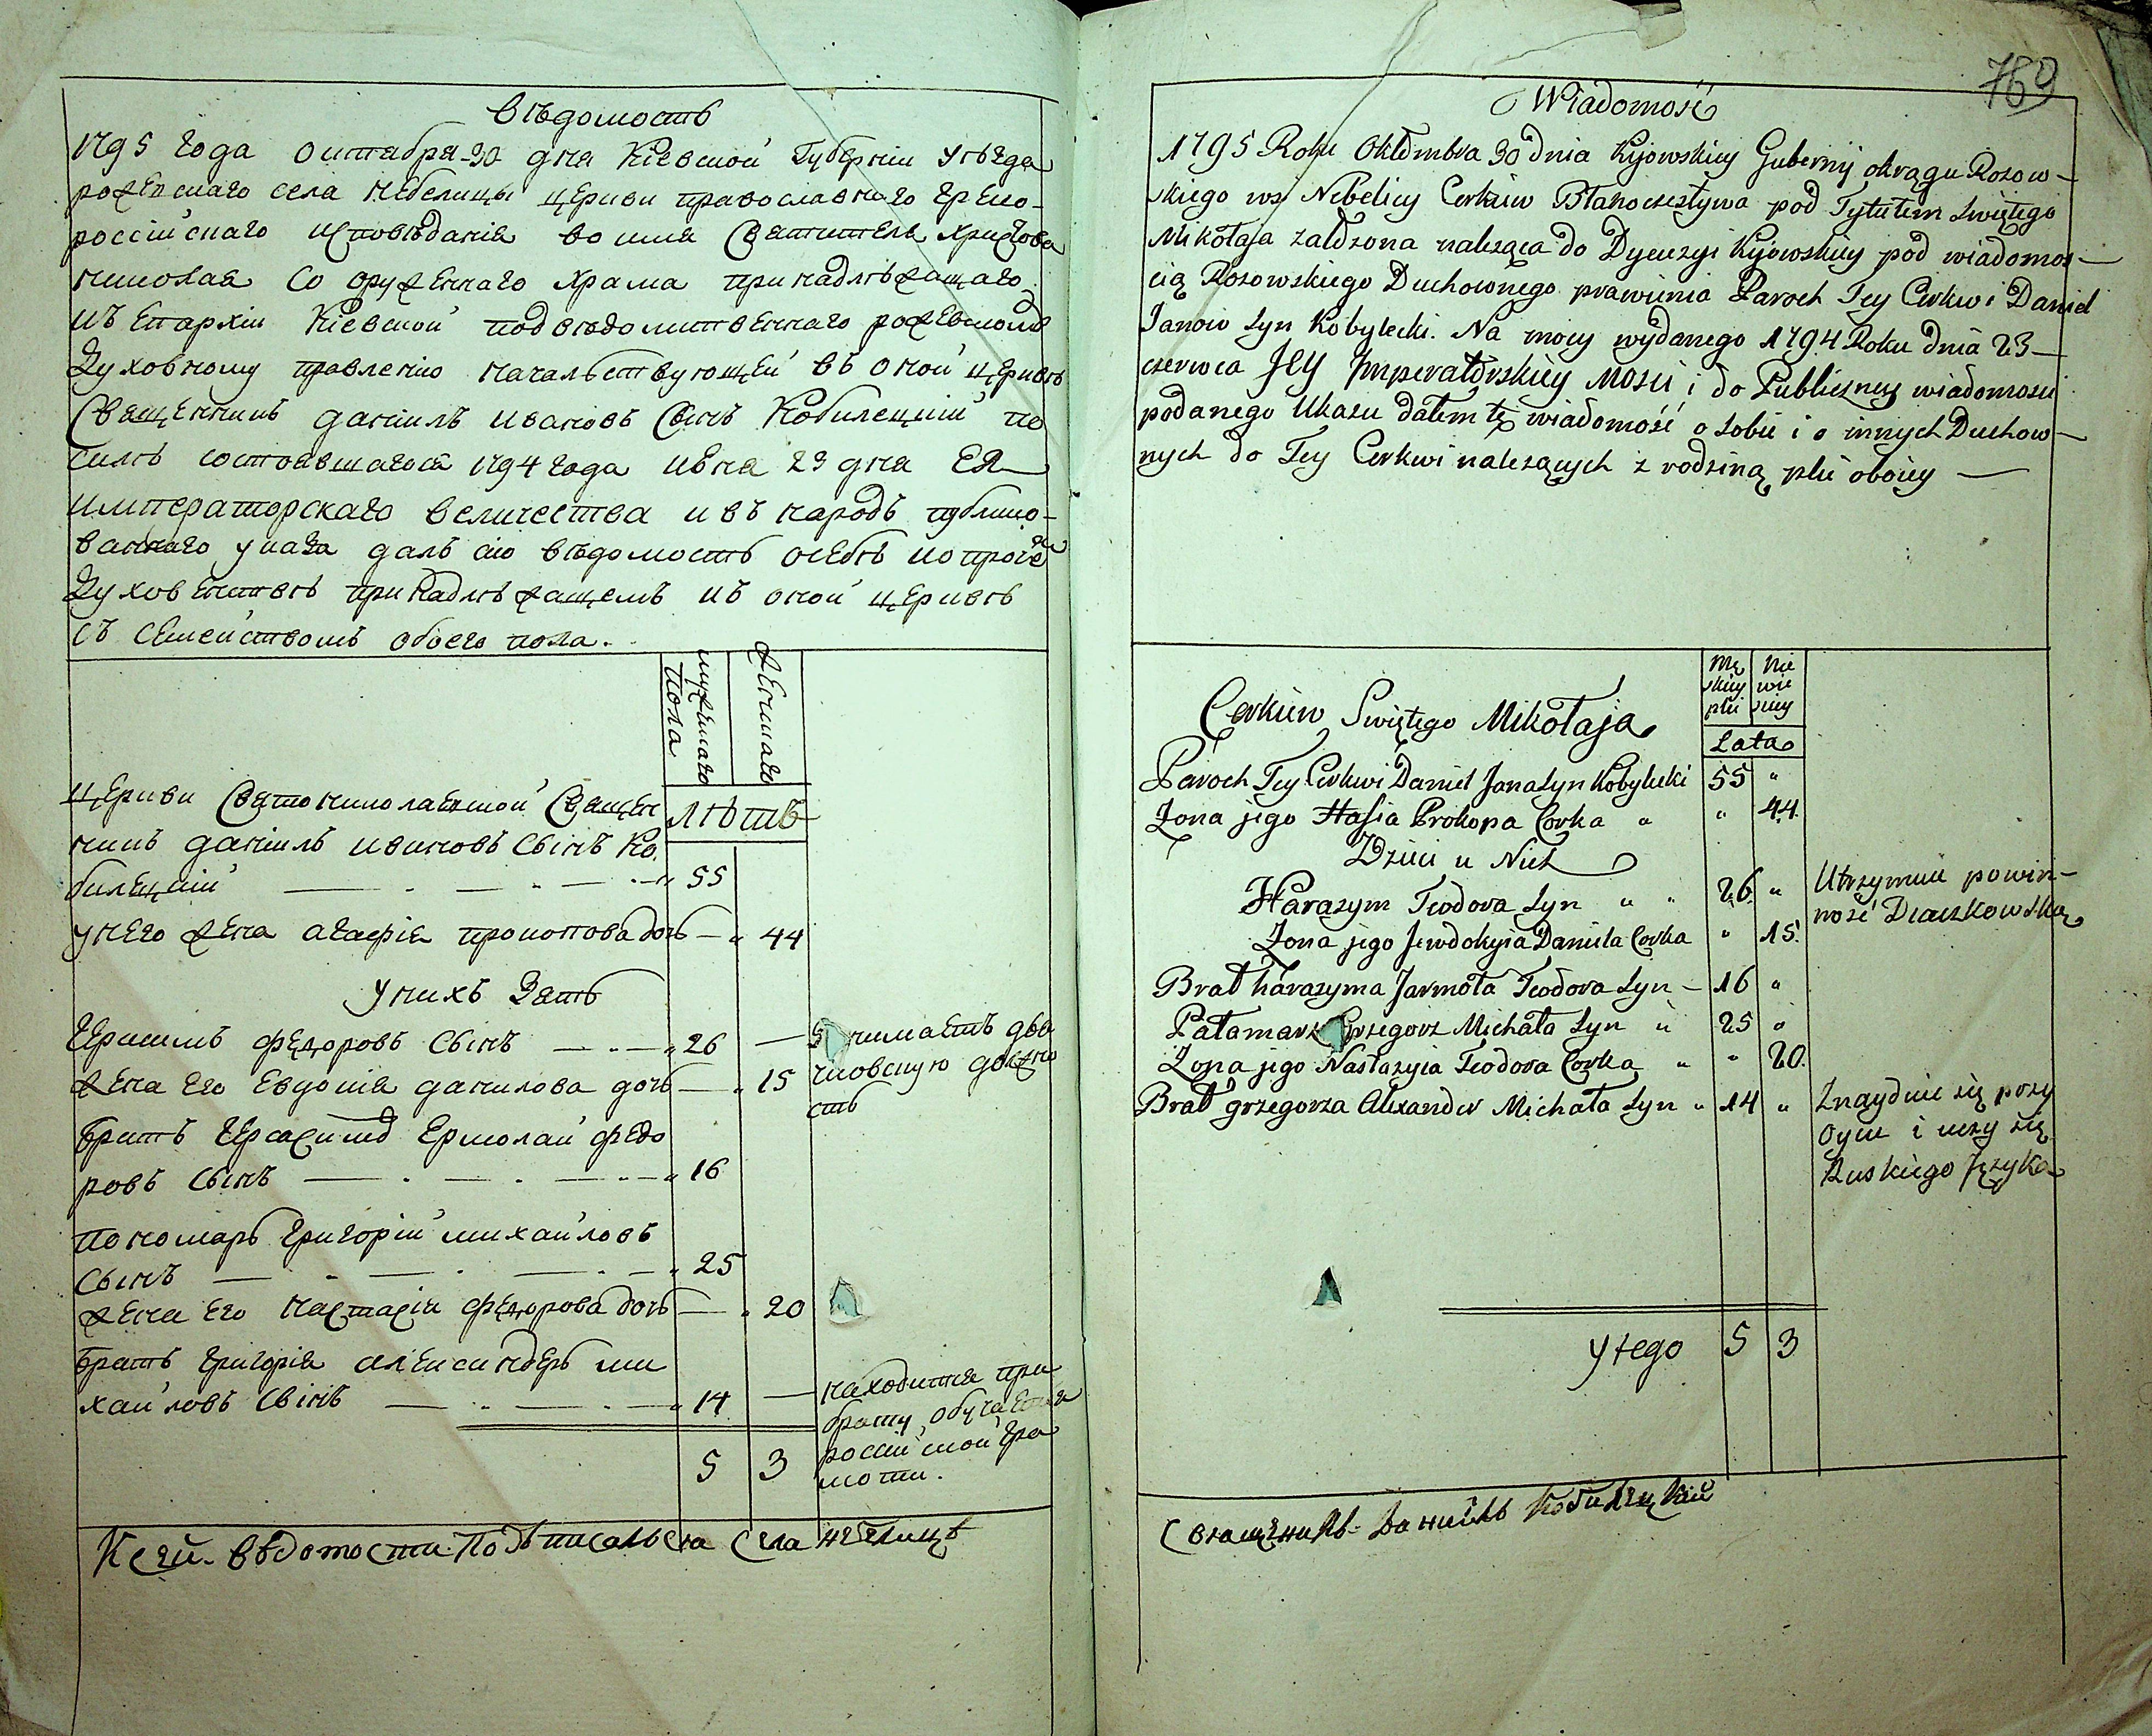 Вѣдомость
1795 Года октабра 30 дня Кіевской Губерніи уѣзда
рожевскаго села Небелицы церкви православнаго Греко-
россійскаго исповѣданія во имя Святителя Христова
николая сооруженнаго храма принадлѣжащаго
къ Епархіи Кіевской подвѣдомственнаго рожевскомѣ
духовному правленію началствующей въ оной церквѣ
Священникъ даніилъ ивановъ Сынъ Кобилецкій по
силѣ состоявшагося 1794 года июня 23 дня Ея
императорскаго величества и въ народъ публико-
ваннаго указа далъ сію вѣдомость осебѣ и о проче
духовенствѣ принадлѣжащемъ къ оной церквѣ
съ семействомъ обоего пола.
мужескаго пола
женскаго
лѣтъ
церкви Святониколаевской Священ
никъ даніилъ ивановъ Сынъ Ко
билецкій 55
унего жена агафія прокопова дочь 44
унихъ Зять
Герасимъ федоровъ Сынъ 26
жена Его Евдокія данилова дочь 15
занимаетъ дья
чковскую должно
сть
братъ Герасима Ермолай федо
ровъ Сынъ 16
пономаръ григорій михайловъ
Сынъ 25
жена Его настасія федорова дочь 20
братъ григорія александеръ ми
хайловъ Сынъ 14
находится при
брату обучается
россійской гра
моти.
5 3
К сей вѣдомости Подъписалься Села небелицъ
769
Wiadomość
1795 Roku Oktombra 30 dnia Kijowskiey Gubernij okrągu Rozow-
skiego wsi Nebelicy Cerkiew Błahoczestywa pod Tytułem Swiętego
Mikołaja założona należąca do Dyecezyi Kijowskiey pod wiadomos-
cią Rozowskiego Duchownego prawienia Paroch Tey Cerkwi Daniel
Janow Syn Kobylecki. Na mocy wydanego 1794 Roku dnia 23
czerwca JEY Jmperatorskiey Mości i do Publiczney wiadomosci
podanego Ukazu dałem tę wiadomość o sobie i o innych Duchow-
nych do Tey Cerkwi należących z rodziną płci oboiey
Mę
skiey
płci
Nie
wie
sciey
Lata
Cerkiew Swiętego Mikołaja
Paroch Tey Cerkwi Daniel Jana Syn Kobylecki 55 "
Zona jego Hasia Prokopa Corka " " 44.
Dzieci u Nich
Harazym Teodora Syn " " 26 "
Utrzymuie powin-
ność Diaczkowską
Zona jego Jewdokyia Daniela Corka " 15.
Brat harazyma Jarmoła Teodora Syn - 16 "
Pałamarz Grzegorz Michała Syn " 25 "
Zona jego Nastazyia Teodora Corka " " 20.
Brat grzegorza Alexander Michała Syn " 14 "
Znayduie się przy
Oycu i uczy się
Ruskiego Języka
y tego 5 3
Священикъ Даниилъ Кобилецкий